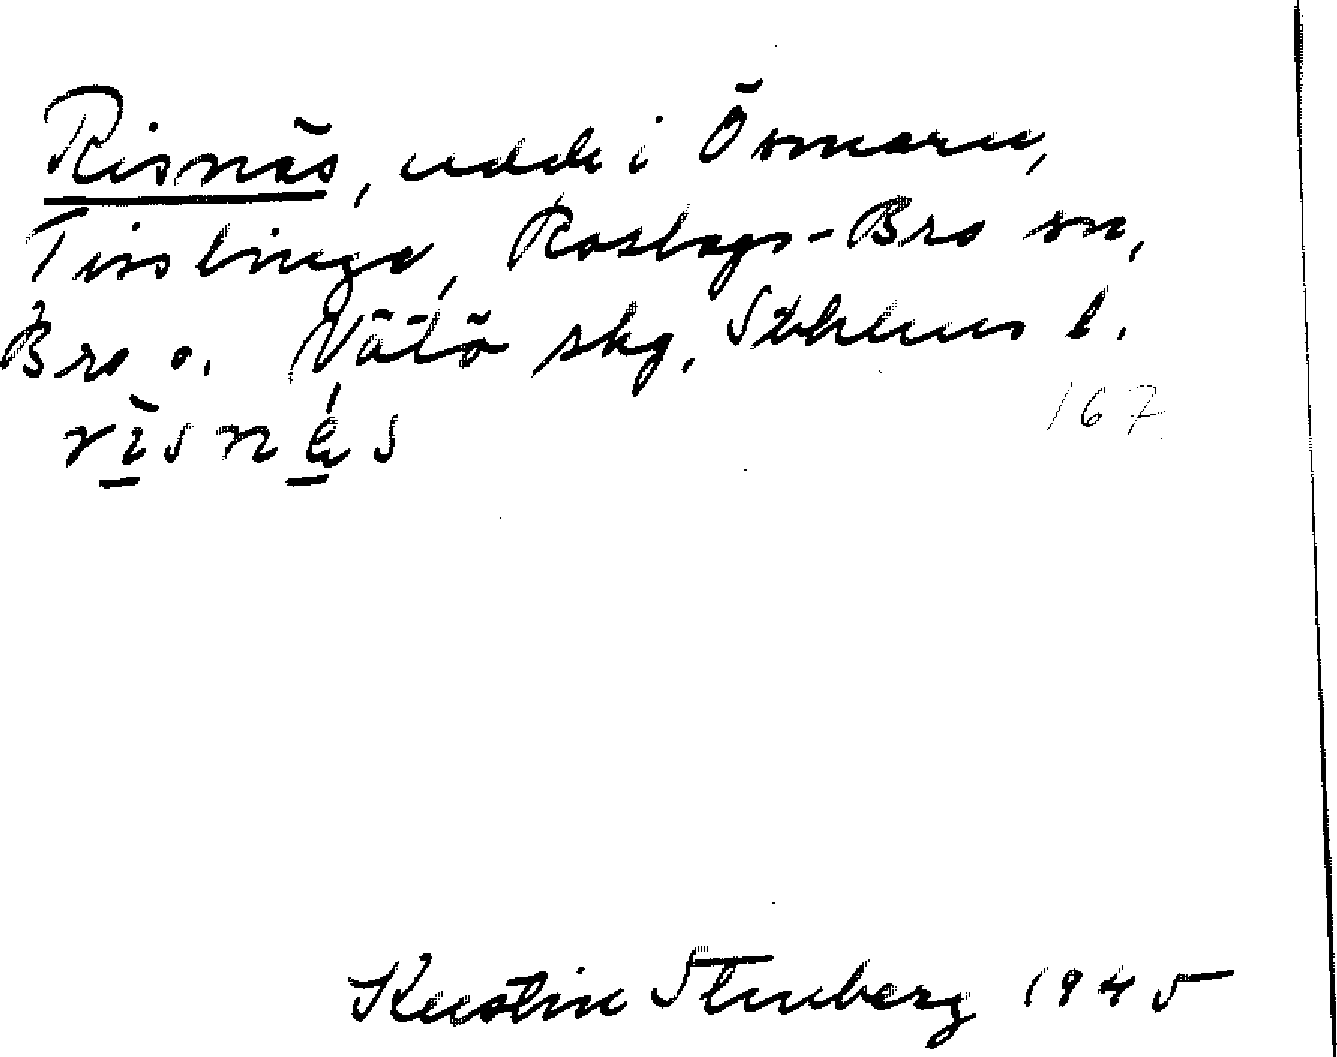 Risnäs, udde i Ösmaren,
Tisslinge, Roslags-Bro sn,
Bro o. Vätö skg, Sthlms l.
rìsnés
167
Kerstin Stenberg 1945